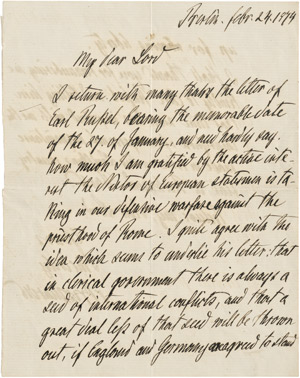 Berlin. febr. 24. 1874
My dear Lord
I return with many thaks the letter of
Earl Russel, bearing the memorable date
of the 27. of January, and need hardly say
how much I am gratified by the active inte-
rest the Nestor of European statesmen is ta-
king in our defensive warfare against the
priesthood of Rome. I quite agree with the
idea which seems to underlie his letter: that
in clerical government there is always a
seed of international conflicts, and that a
great deal less of that seed will be thrown
out, if England and Germany are agreed to stand